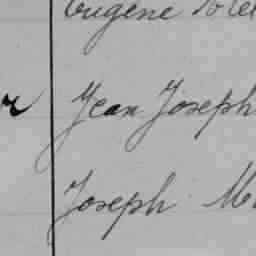 Eugène
Jean Joseph
Joseph